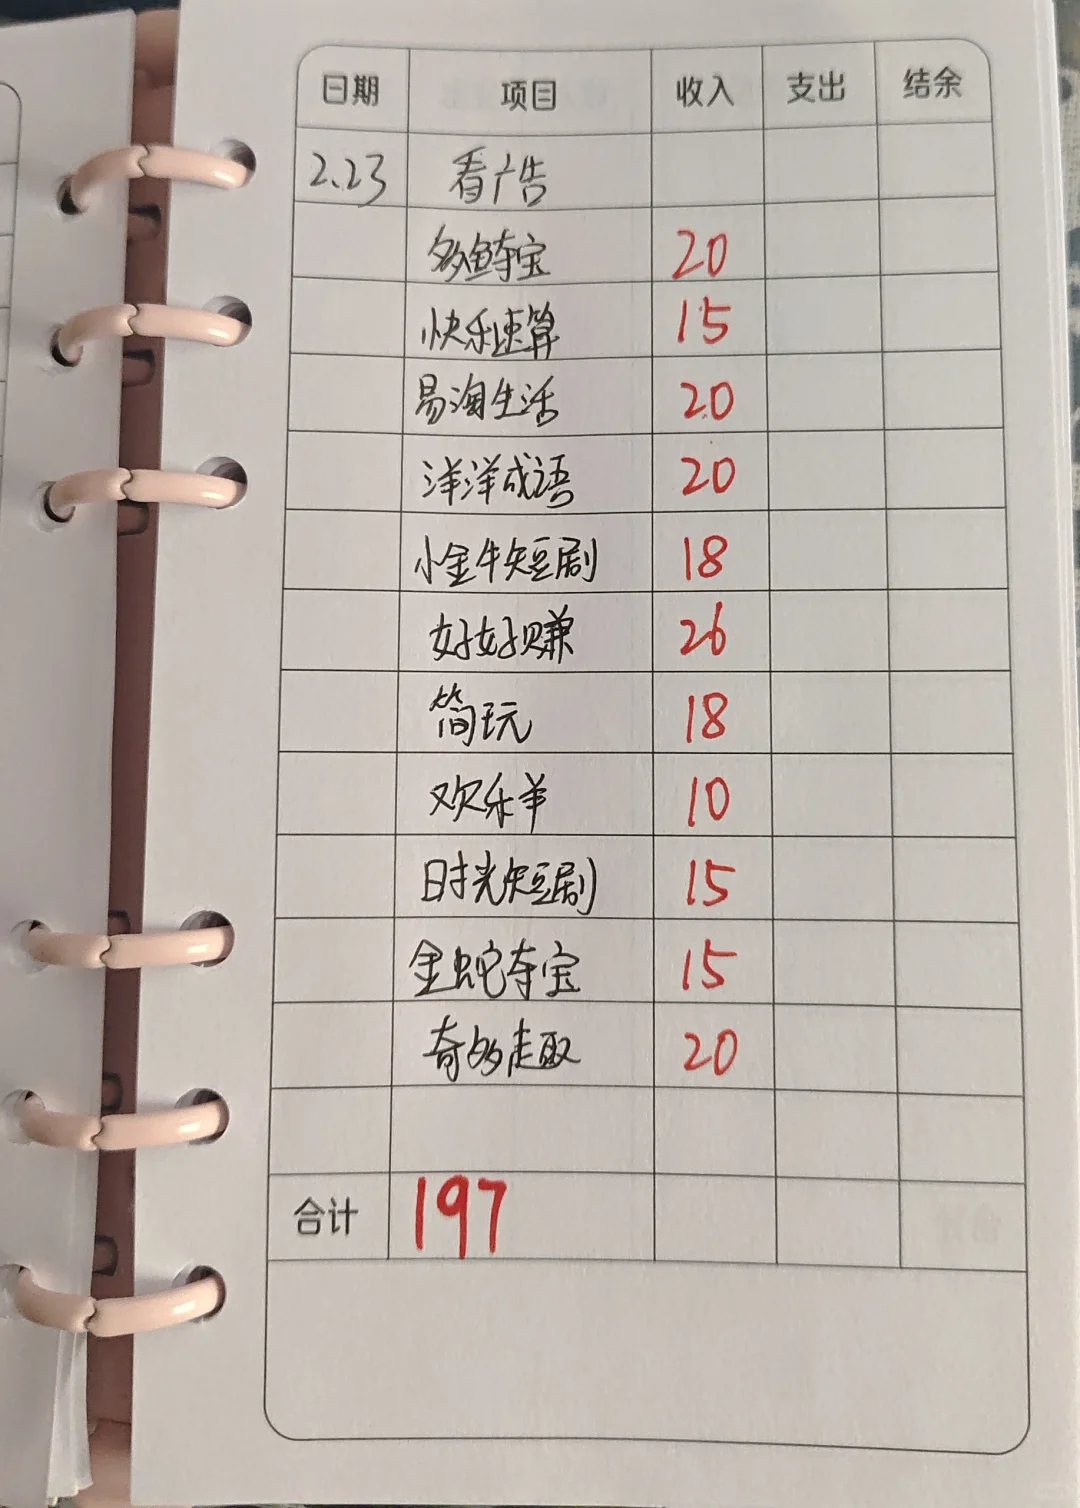 日期 项目 收入 支出 结余
2.23 看广告
多鱼夺宝 20
快乐速算 15
易淘生活 20
洋洋成语 20
小金牛短剧 18
好好赚 26
简玩 18
欢乐羊 10
时光短剧 15
金蛇夺宝 15
奇多趣 20
合计 197